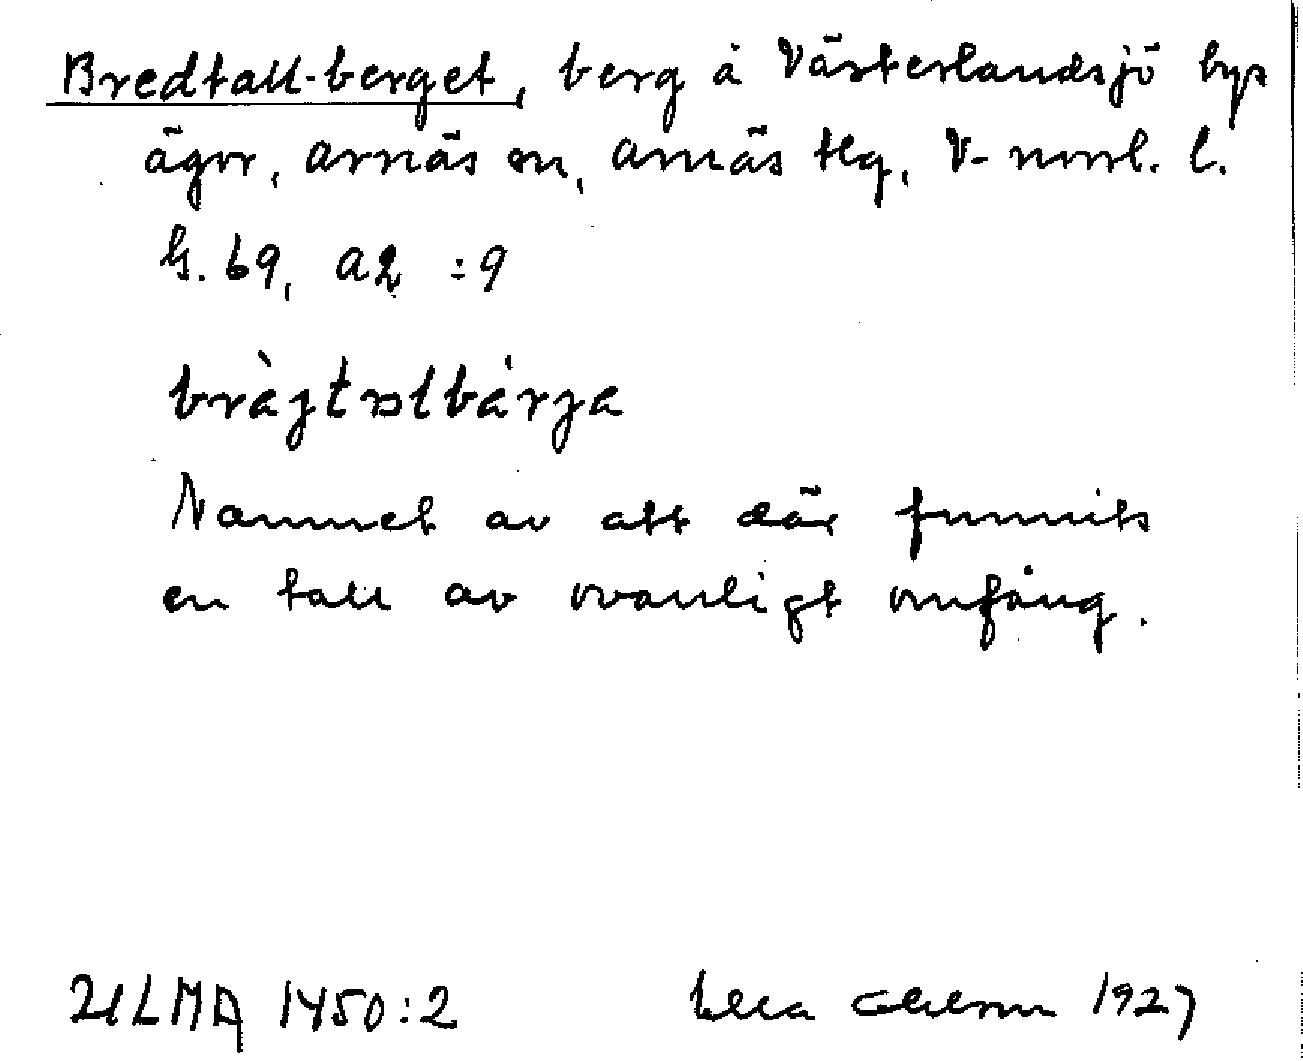 Bredtall-berget, berg å Västerlandsjö bys
ägor, Arnäs sn, Arnäs tlg, V-norrl. l.
G. 69, a2 :9
bràjtɒlbárja
Namnet av att där funnits
en tall av ovanligt omfång.
ULMA 1450:2 Ella Ohlson 1927